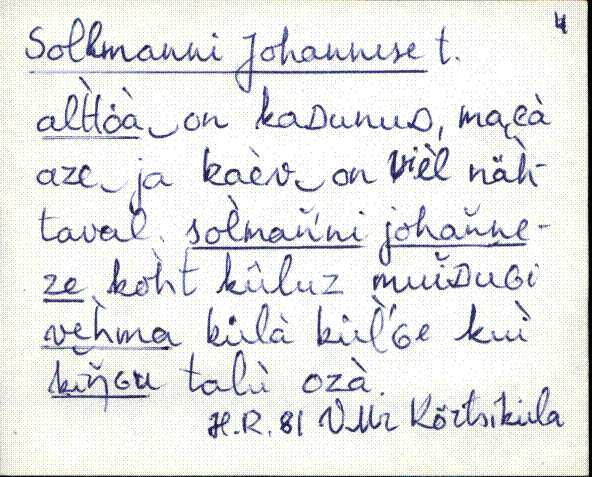 4
Sollmanni Johannese t.
al̀t̀t̀öà‿on kaᴅunuᴅ, maɢà
aze‿ja kaèv‿on vièl näh̀-
taval. sòlmaňńi johaňne-
ze kòh̀t kûluz muiᴅuɢi
vèh̀ma külà kül̀'ɢe kuì
kiŋ̆ɢu talù ozà.
H.R. 81 VMr Kõrtsiküla